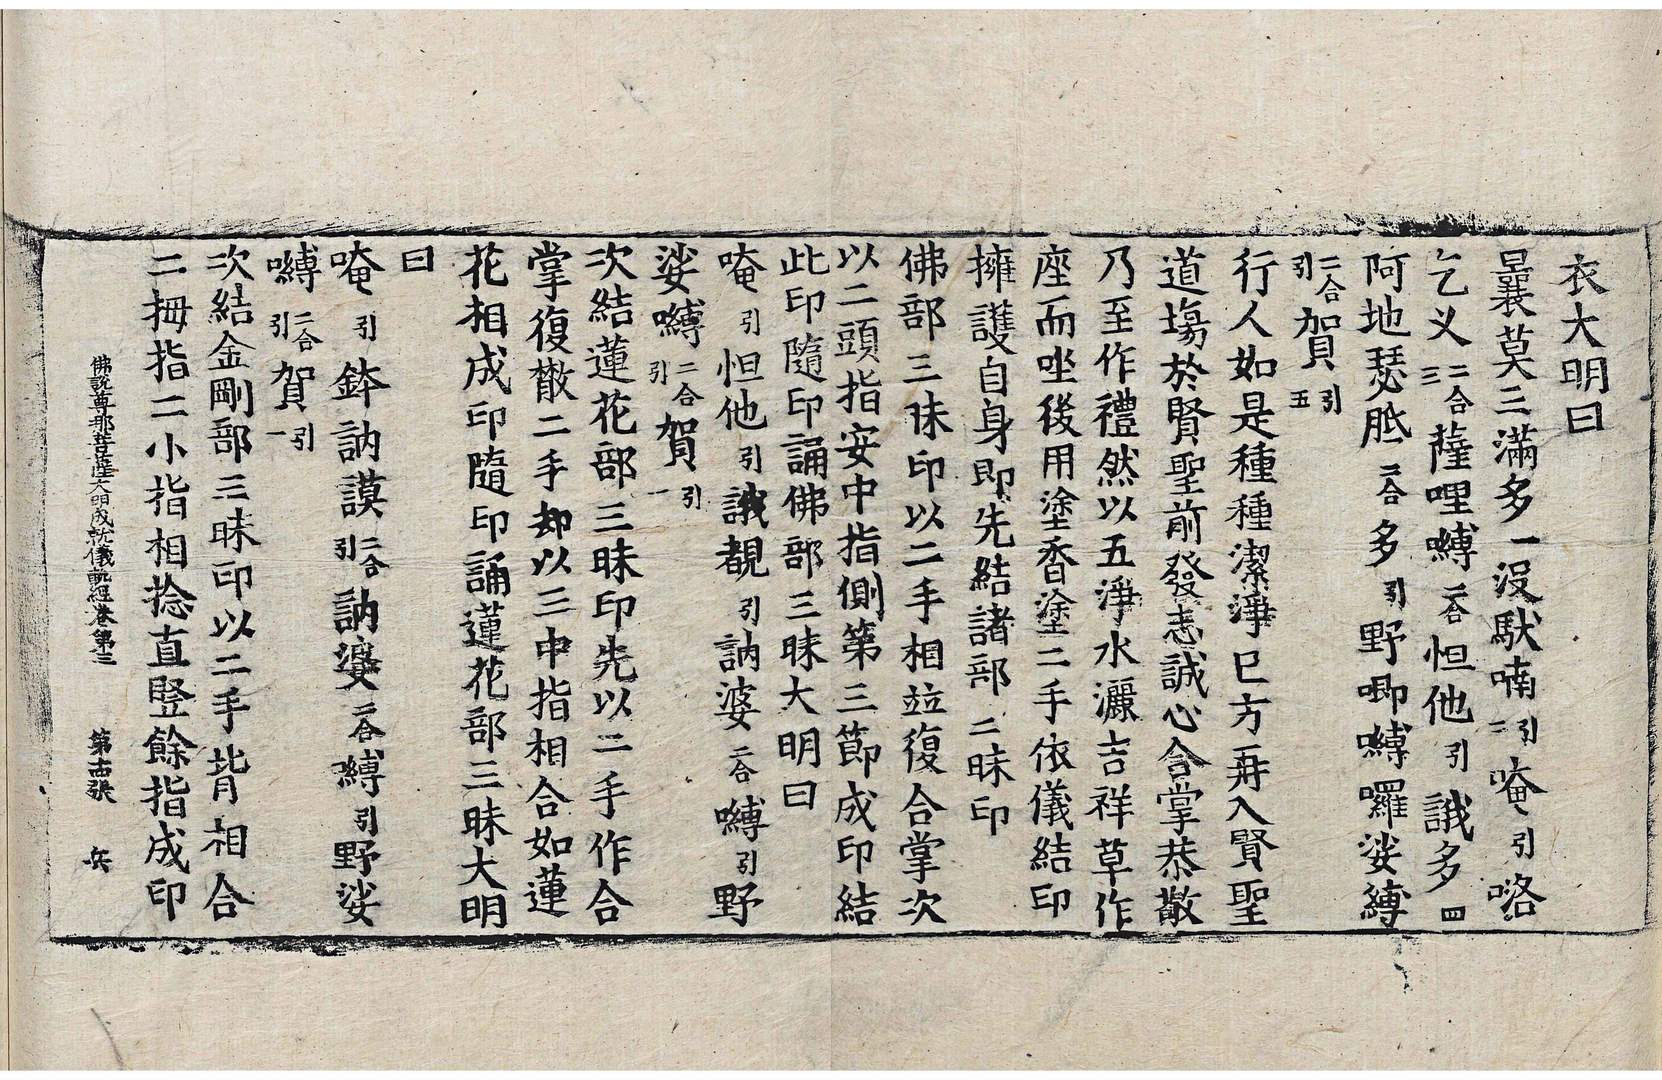 衣大明曰
曩莫三滿多一沒馱喃引二唵引咯
乞义二合三薩哩嚩二合怛他引誐多四
阿地瑟胝二合多引野唧嚩囉娑嚩
二合引賀引五
行人如是種種潔淨已方再入賢聖
道場於賢聖前發志誠心合掌恭敬
乃至作禮然以五淨水灑吉祥草作
座而坐後用塗香塗二手依儀結印
擁護自身即先結諸部三昧印
佛部三昧印以二手相竝復合掌次
以二頭指安中指側第三節成印結
此印隨印誦佛部三昧大明曰
唵引怛他引誐覩引訥婆二合嚩引野
娑嚩二合引賀引一
次結蓮花部三昧印先以二手作合
掌復散二手却以三中指相合如蓮
花相成印隨印誦蓮花部三昧大明
曰
唵引鉢訥謨二合引訥婆二合嚩引野娑
嚩二合引賀引一
次結金剛部三昧印以二手背相合
二拇指二小指相捻直竪餘指成印
佛說尊那菩薩大明成就儀軌經卷第三 第十四張 兵